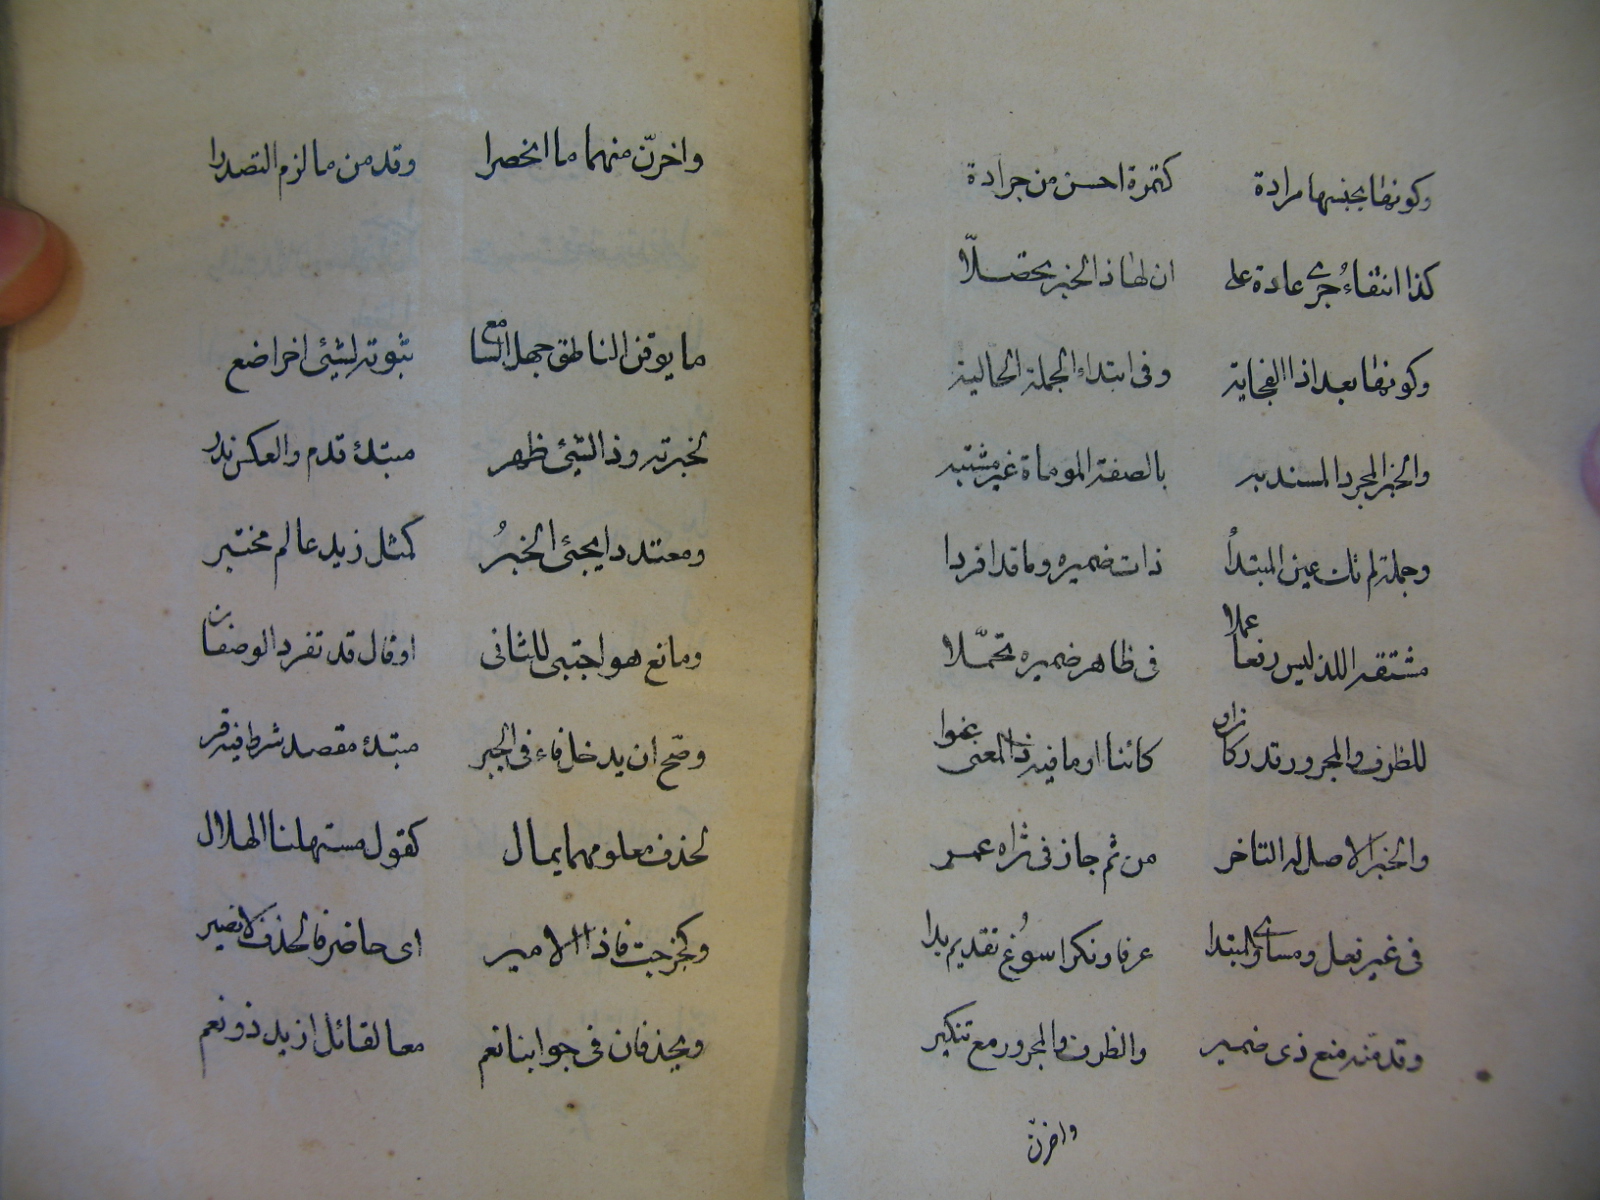 وكونها بجنسها مرادة كتمرة احسن من جرادة
كذا انتفاء جرى عادة على ان لهذا الخبر يحصلا
وكونها بعد اذا الفجاية وفى ابتداء الجملة الحالية
والخبر المجرد المسند به بالصفة الموماة غير مشتبه
وجملة لم تك عين المبتدأ ذات ضميره وما قد افردا
مشتقه اللذ ليس رفعا عملا فى ظاهر ضميره تحمّلا
للظرف والمجرور قد زكان او كائنا او ما فيه ذا المعنى نموا
والخبر الاصل له التاخر من ثم جاز فى ثراه عمر
فى غير فعل ومساوى المبتدا عرفا ونكرا سوغ تقديم بدا
وقدمنه منع ذى ضمير والظرف والمجرور مع تنكير
واخرنّ
واخرنّ منهما ما انحصرا وقدمن ما لزم التصدرا
ما يوقن الناطق جهل السامع ثبوته لشيئ اخر اضع
لخبرته وذا الشيئ ظهر مبتدئ قدم والعكس ندر
ومعتددا يجيئ الخبرُ كمثل زيد عالم مختبر
ومانع هو اجتبى للثانى او قال قد تفرد الوصفان
وصح ان يدخل فاء فى الخبر مبتدئ مقصد شرط فيه قر
لحذف معلومهما يمال كقول مستهلنا الهلال
وكخرجت فاذا الامير اى حاضر فالحذف لا نضير
ويحذفان فى جوابنا نعم معا لقائل ازيد ذو نعم